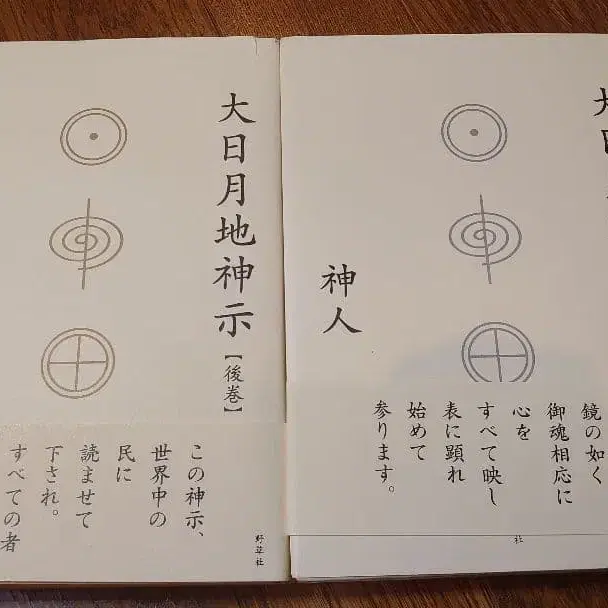 大日月地神示【後巻】
この神示、
世界中の
民に
読ませて
下され。
すべての者
野草社
神人
鏡の如く
御魂相応に
心を
すべて映し
表に顕れ
始めて
参ります。
社